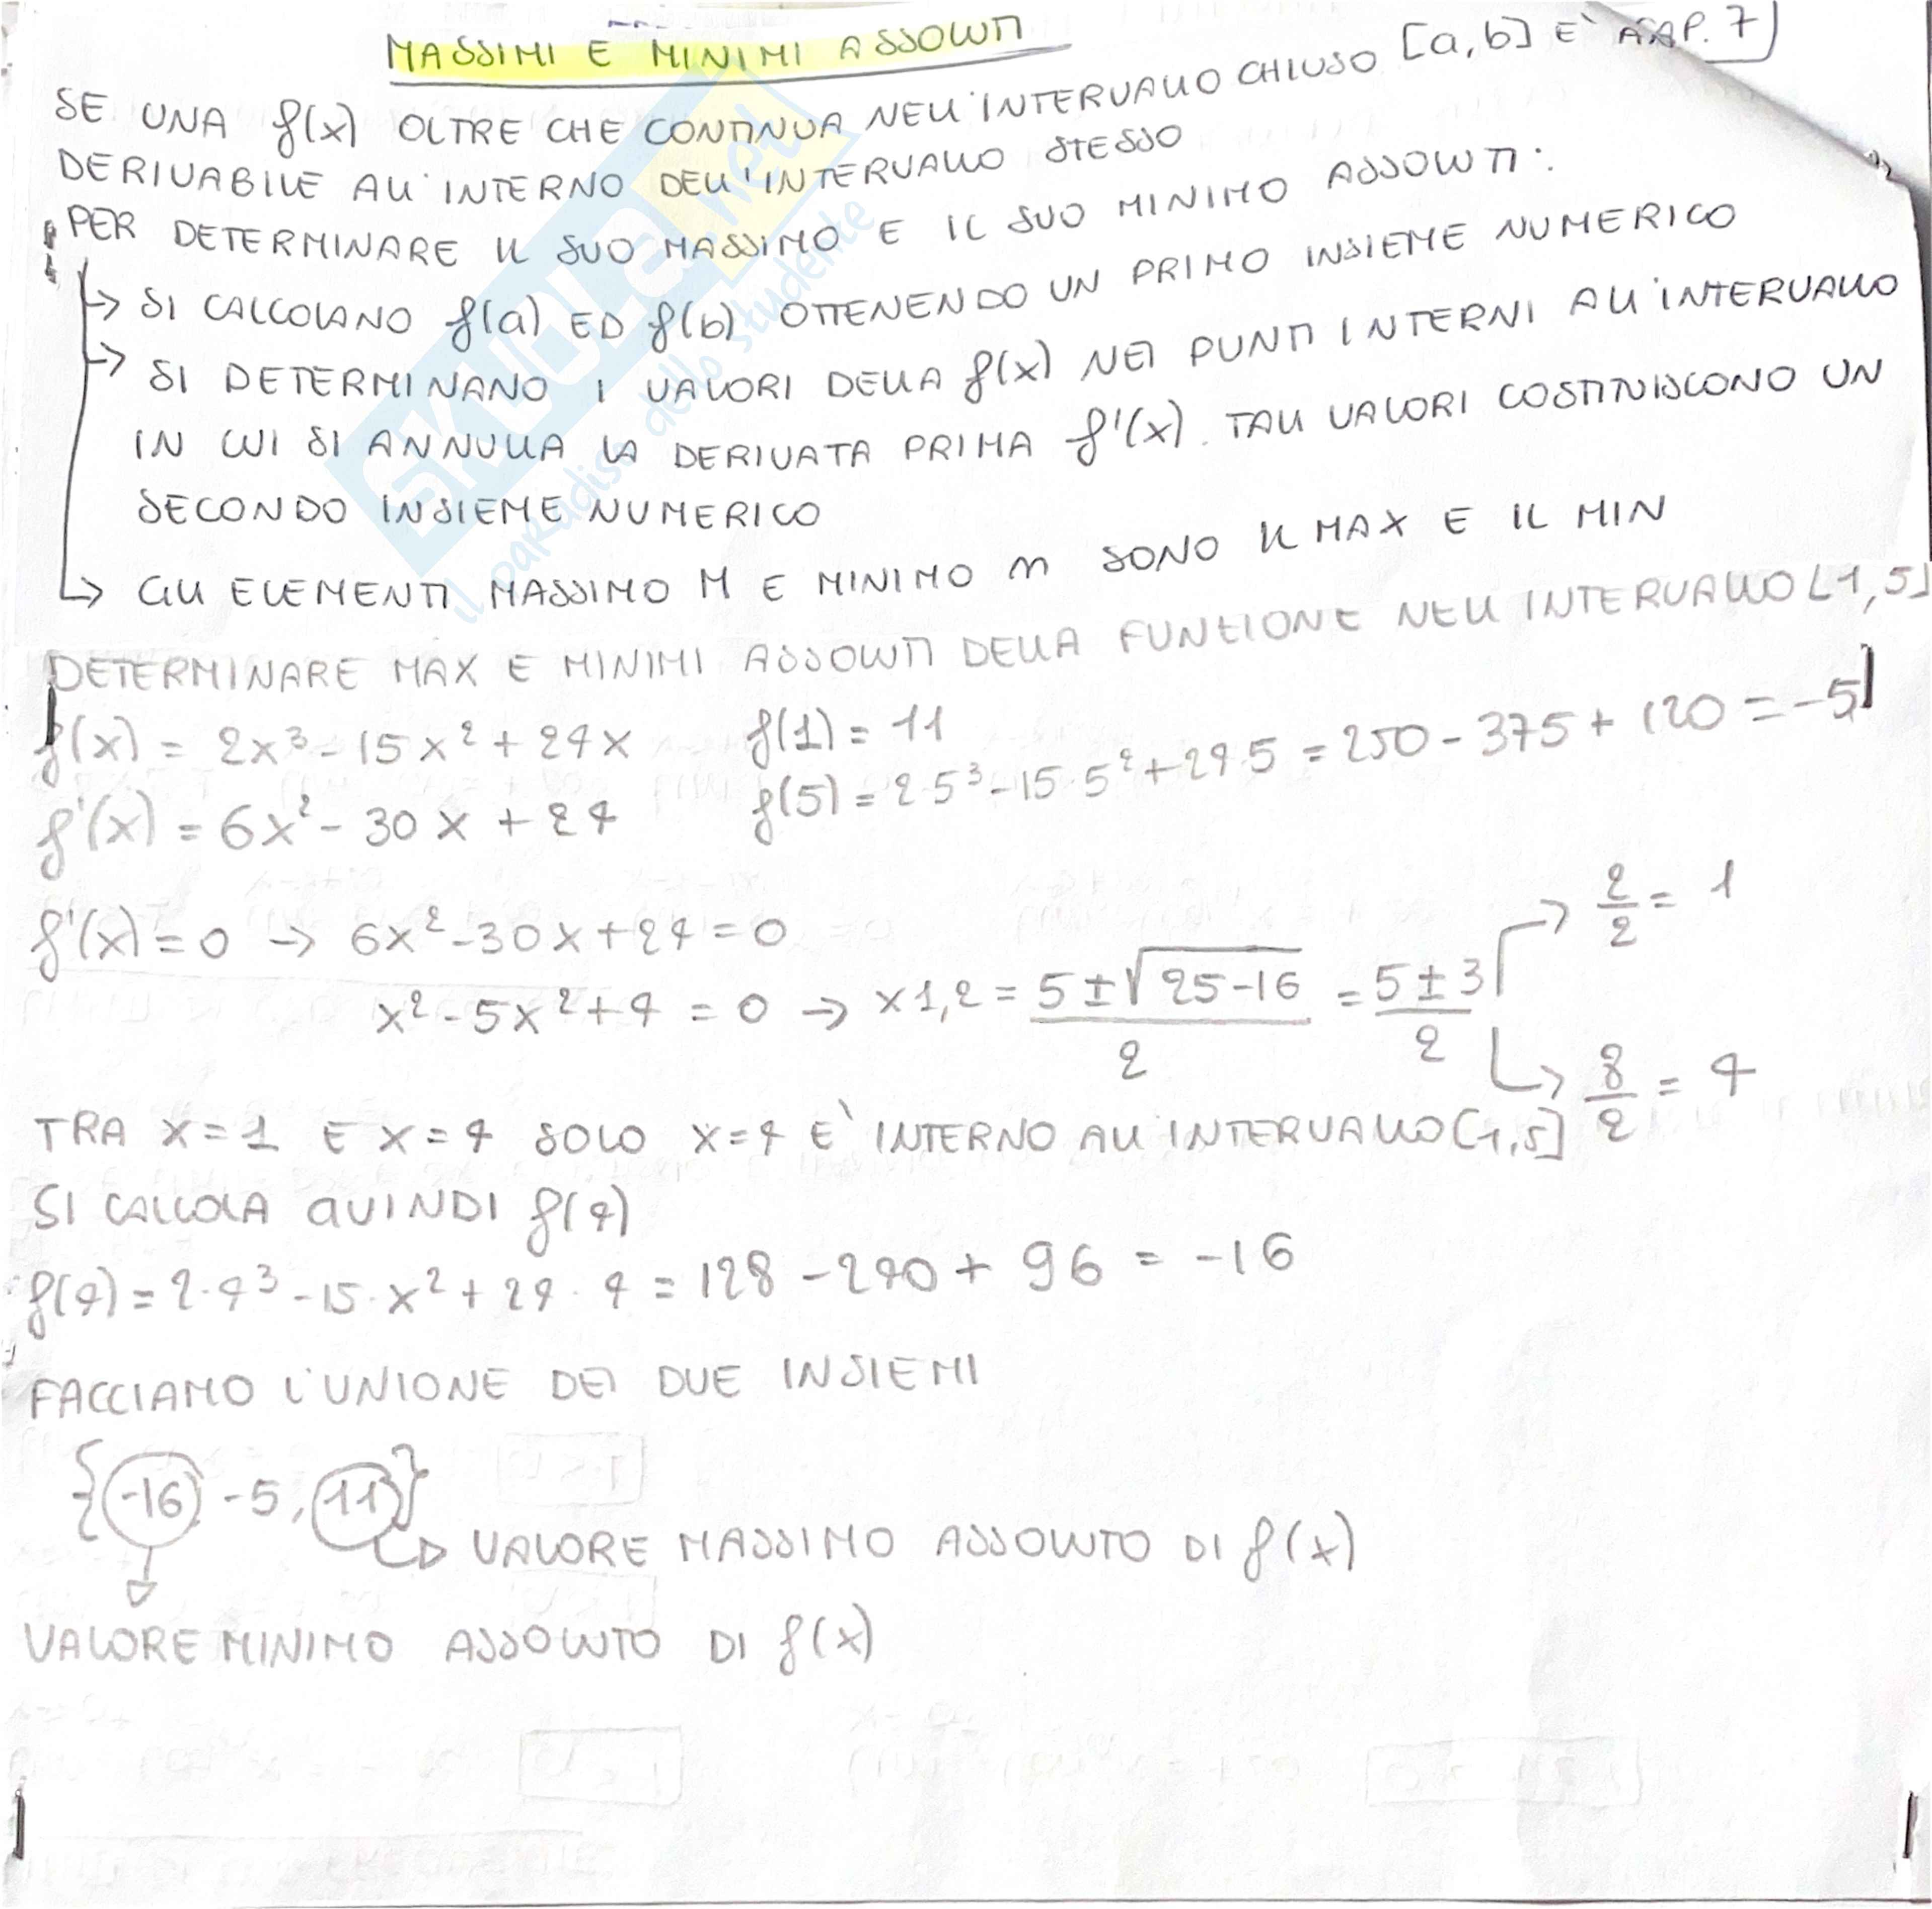 MASSIMI E MINIMI ASSOLUTI
CAP. 7
SE UNA f(x) OLTRE CHE CONTINUA NELL'INTERVALLO CHIUSO [a,b] E'
DERIVABILE ALL'INTERNO DELL'INTERVALLO STESSO
PER DETERMINARE IL SUO MASSIMO E IL SUO MINIMO ASSOLUTI:
→ SI CALCOLANO f(a) ED f(b) OTTENENDO UN PRIMO INSIEME NUMERICO
→ SI DETERMINANO I VALORI DELLA f(x) NEI PUNTI INTERNI ALL'INTERVALLO
IN CUI SI ANNULLA LA DERIVATA PRIMA f'(x). TALI VALORI COSTITUISCONO UN
SECONDO INSIEME NUMERICO
→ GLI ELEMENTI MASSIMO M E MINIMO m SONO IL MAX E IL MIN
DETERMINARE MAX E MINIMI ASSOLUTI DELLA FUNZIONE NELL'INTERVALLO [1,5]
f(x) = 2x³ - 15x² + 24x f(1) = 11
f'(x) = 6x² - 30x + 24 f(5) = 2·5³ - 15·5² + 24·5 = 250 - 375 + 120 = -5
f'(x) = 0 → 6x² - 30x + 24 = 0
x² - 5x² + 4 = 0 → x1,2 = (5 ± √(25-16))/2 = (5 ± 3)/2 → 2/2 = 1
→ 8/2 = 4
TRA x=1 E x=4 SOLO x=4 E' INTERNO ALL'INTERVALLO [1,5]
SI CALCOLA QUINDI f(4)
f(4) = 2·4³ - 15·x² + 24·4 = 128 - 240 + 96 = -16
FACCIAMO L'UNIONE DEI DUE INSIEMI
{-16, -5, 11}
→ VALORE MASSIMO ASSOLUTO DI f(x)
VALORE MINIMO ASSOLUTO DI f(x)
SKUOLA.net
il paradiso dello studente